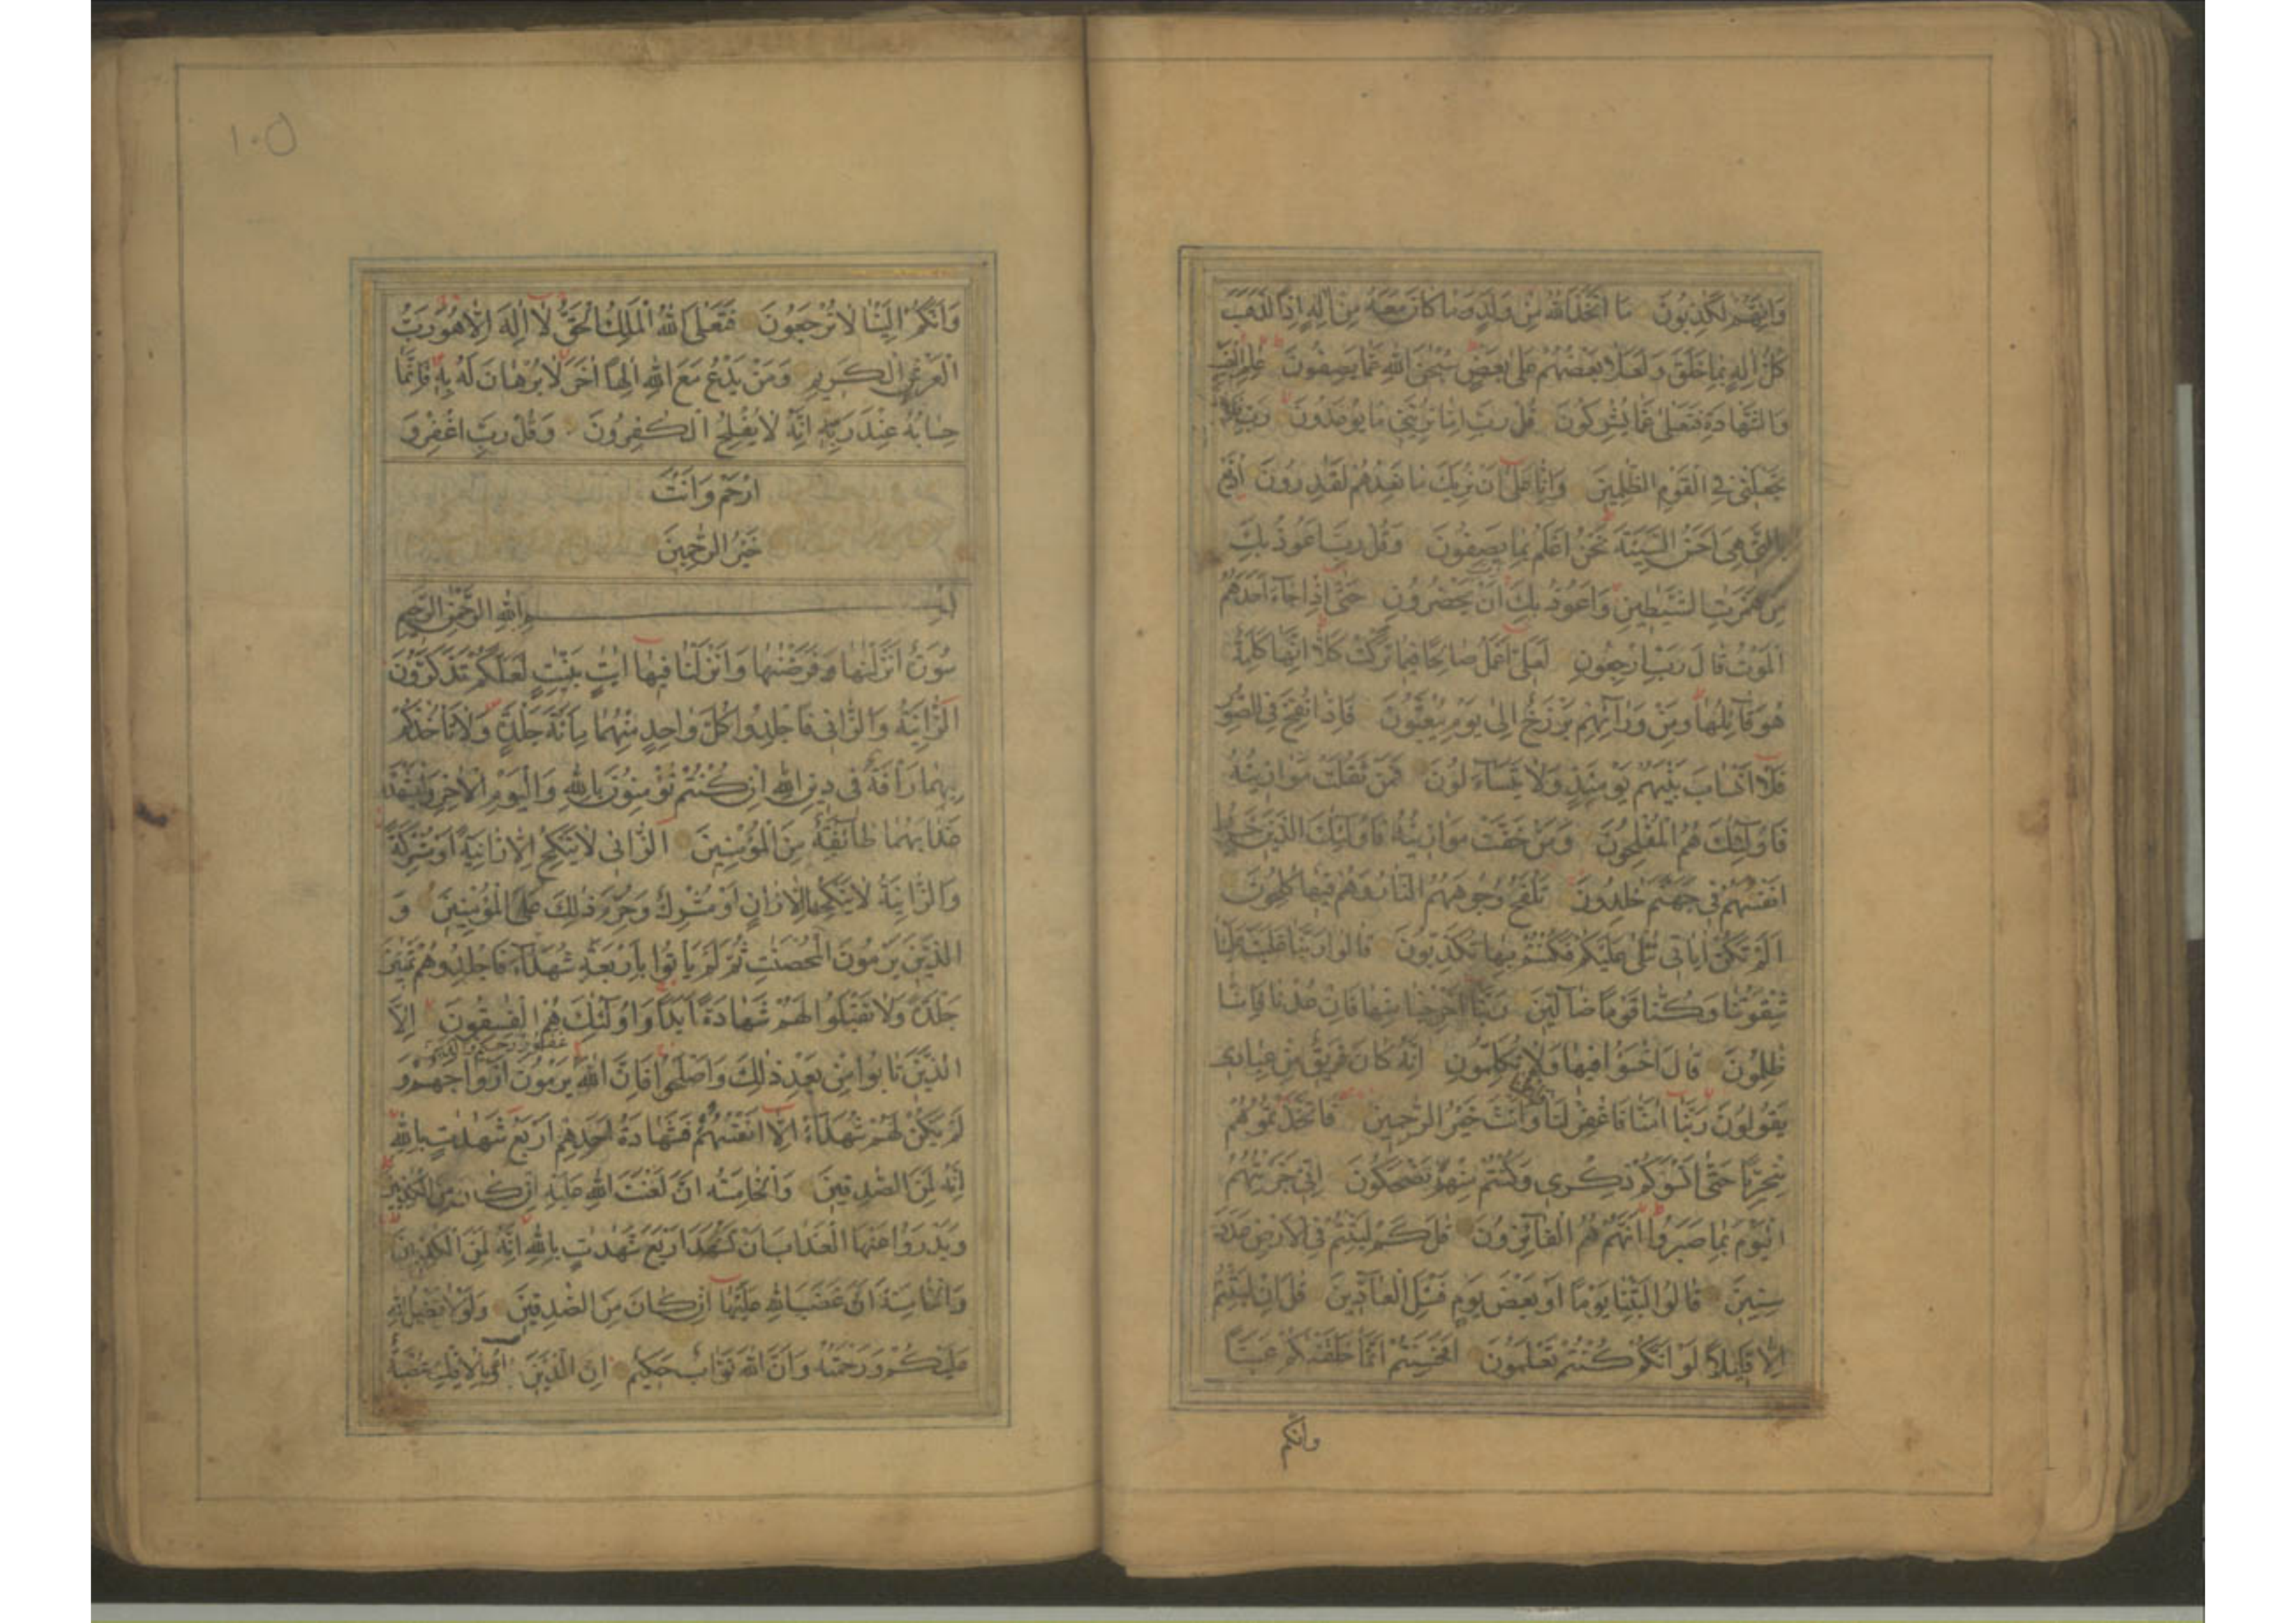 وَاِنَّهُمْ لَكٰذِبُونَ مَا اتَّخَذَ اللهُ مِنْ وَلَدٍ وَمَا كَانَ مَعَهُ مِنْ اِلٰهٍ اِذًا لَذَهَبَ
كُلُّ اِلٰهٍ بِمَا خَلَقَ وَلَعَلَا بَعْضُهُمْ عَلٰى بَعْضٍ سُبْحٰنَ اللهِ عَمَّا يَصِفُونَ عٰلِمِ الْغَيْبِ
وَالشَّهَادَةِ فَتَعٰلٰى عَمَّا يُشْرِكُونَ قُلْ رَبِّ اِمَّا تُرِيَنِّي مَا يُوعَدُونَ رَبِّ فَلَا
تَجْعَلْنِي فِي الْقَوْمِ الظّٰلِمِينَ وَاِنَّا عَلٰى اَنْ نُرِيَكَ مَا نَعِدُهُمْ لَقٰدِرُونَ اِدْفَعْ
بِالَّتِي هِيَ اَحْسَنُ السَّيِّئَةَ نَحْنُ اَعْلَمُ بِمَا يَصِفُونَ وَقُلْ رَبِّ اَعُوذُ بِكَ
مِنْ هَمَزٰتِ الشَّيٰطِينِ وَاَعُوذُ بِكَ اَنْ يَحْضُرُونِ حَتّٰى اِذَا جَآءَ اَحَدَهُمُ
الْمَوْتُ قَالَ رَبِّ ارْجِعُونِ لَعَلِّي اَعْمَلُ صَالِحًا فِيمَا تَرَكْتُ كَلَّا اِنَّهَا كَلِمَةٌ
هُوَ قَآئِلُهَا وَمِنْ وَرَآئِهِمْ بَرْزَخٌ اِلٰى يَوْمِ يُبْعَثُونَ فَاِذَا نُفِخَ فِي الصُّورِ
فَلَا اَنْسَابَ بَيْنَهُمْ يَوْمَئِذٍ وَلَا يَتَسَآءَلُونَ فَمَنْ ثَقُلَتْ مَوَازِينُهُ
فَاُولٰئِكَ هُمُ الْمُفْلِحُونَ وَمَنْ خَفَّتْ مَوَازِينُهُ فَاُولٰئِكَ الَّذِينَ خَسِرُوا
اَنْفُسَهُمْ فِي جَهَنَّمَ خٰلِدُونَ تَلْفَحُ وُجُوهَهُمُ النَّارُ وَهُمْ فِيهَا كٰلِحُونَ
اَلَمْ تَكُنْ اٰيَاتِي تُتْلٰى عَلَيْكُمْ فَكُنْتُمْ بِهَا تُكَذِّبُونَ قَالُوا رَبَّنَا غَلَبَتْ عَلَيْنَا
شِقْوَتُنَا وَكُنَّا قَوْمًا ضَآلِّينَ رَبَّنَا اَخْرِجْنَا مِنْهَا فَاِنْ عُدْنَا فَاِنَّا
ظٰلِمُونَ قَالَ اخْسَؤُا فِيهَا وَلَا تُكَلِّمُونِ اِنَّهُ كَانَ فَرِيقٌ مِنْ عِبَادِي
يَقُولُونَ رَبَّنَا اٰمَنَّا فَاغْفِرْ لَنَا وَارْحَمْنَا وَاَنْتَ خَيْرُ الرّٰحِمِينَ فَاتَّخَذْتُمُوهُمْ
سِخْرِيًّا حَتّٰى اَنْسَوْكُمْ ذِكْرِي وَكُنْتُمْ مِنْهُمْ تَضْحَكُونَ اِنِّي جَزَيْتُهُمُ
الْيَوْمَ بِمَا صَبَرُوا اَنَّهُمْ هُمُ الْفَآئِزُونَ قٰلَ كَمْ لَبِثْتُمْ فِي الْاَرْضِ عَدَدَ
سِنِينَ قَالُوا لَبِثْنَا يَوْمًا اَوْ بَعْضَ يَوْمٍ فَسْئَلِ الْعَآدِّينَ قٰلَ اِنْ لَبِثْتُمْ
اِلَّا قَلِيلًا لَوْ اَنَّكُمْ كُنْتُمْ تَعْلَمُونَ اَفَحَسِبْتُمْ اَنَّمَا خَلَقْنٰكُمْ عَبَثًا
وانكم
١٠٥
وَاَنَّكُمْ اِلَيْنَا لَا تُرْجَعُونَ فَتَعٰلَى اللهُ الْمَلِكُ الْحَقُّ لَا اِلٰهَ اِلَّا هُوَ رَبُّ
الْعَرْشِ الْكَرِيمِ وَمَنْ يَدْعُ مَعَ اللهِ اِلٰهًا اٰخَرَ لَا بُرْهَانَ لَهُ بِهِ فَاِنَّمَا
حِسَابُهُ عِنْدَ رَبِّهِ اِنَّهُ لَا يُفْلِحُ الْكٰفِرُونَ وَقُلْ رَبِّ اغْفِرْ وَ
ارْحَمْ وَاَنْتَ
خَيْرُ الرّٰحِمِينَ
بِسْمِ اللهِ الرَّحْمٰنِ الرَّحِيمِ
سُورَةٌ اَنْزَلْنٰهَا وَفَرَضْنٰهَا وَاَنْزَلْنَا فِيهَا اٰيٰتٍ بَيِّنٰتٍ لَعَلَّكُمْ تَذَكَّرُونَ
اَلزَّانِيَةُ وَالزَّانِي فَاجْلِدُوا كُلَّ وَاحِدٍ مِنْهُمَا مِائَةَ جَلْدَةٍ وَلَا تَاْخُذْكُمْ
بِهِمَا رَاْفَةٌ فِي دِينِ اللهِ اِنْ كُنْتُمْ تُؤْمِنُونَ بِاللهِ وَالْيَوْمِ الْاٰخِرِ وَلْيَشْهَدْ
عَذَابَهُمَا طَآئِفَةٌ مِنَ الْمُؤْمِنِينَ اَلزَّانِي لَا يَنْكِحُ اِلَّا زَانِيَةً اَوْ مُشْرِكَةً
وَالزَّانِيَةُ لَا يَنْكِحُهَا اِلَّا زَانٍ اَوْ مُشْرِكٌ وَحُرِّمَ ذٰلِكَ عَلَى الْمُؤْمِنِينَ وَ
الَّذِينَ يَرْمُونَ الْمُحْصَنٰتِ ثُمَّ لَمْ يَاْتُوا بِاَرْبَعَةِ شُهَدَآءَ فَاجْلِدُوهُمْ ثَمٰنِينَ
جَلْدَةً وَلَا تَقْبَلُوا لَهُمْ شَهَادَةً اَبَدًا وَاُولٰئِكَ هُمُ الْفٰسِقُونَ اِلَّا
غفور رحيم والذين
الَّذِينَ تَابُوا مِنْ بَعْدِ ذٰلِكَ وَاَصْلَحُوا فَاِنَّ اللهَ يَرْمُونَ اَزْوَاجَهُمْ وَ
لَمْ يَكُنْ لَهُمْ شُهَدَآءُ اِلَّا اَنْفُسُهُمْ فَشَهَادَةُ اَحَدِهِمْ اَرْبَعُ شَهٰدٰتٍ بِاللهِ
اِنَّهُ لَمِنَ الصّٰدِقِينَ وَالْخَامِسَةُ اَنَّ لَعْنَتَ اللهِ عَلَيْهِ اِنْ كَانَ مِنَ الْكٰذِبِينَ
وَيَدْرَؤُا عَنْهَا الْعَذَابَ اَنْ تَشْهَدَ اَرْبَعَ شَهٰدٰتٍ بِاللهِ اِنَّهُ لَمِنَ الْكٰذِبِينَ
وَالْخَامِسَةَ اَنَّ غَضَبَ اللهِ عَلَيْهَا اِنْ كَانَ مِنَ الصّٰدِقِينَ وَلَوْلَا فَضْلُ اللهِ
عَلَيْكُمْ وَرَحْمَتُهُ وَاَنَّ اللهَ تَوَّابٌ حَكِيمٌ اِنَّ الَّذِينَ جَآؤُ بِالْاِفْكِ عُصْبَةٌ